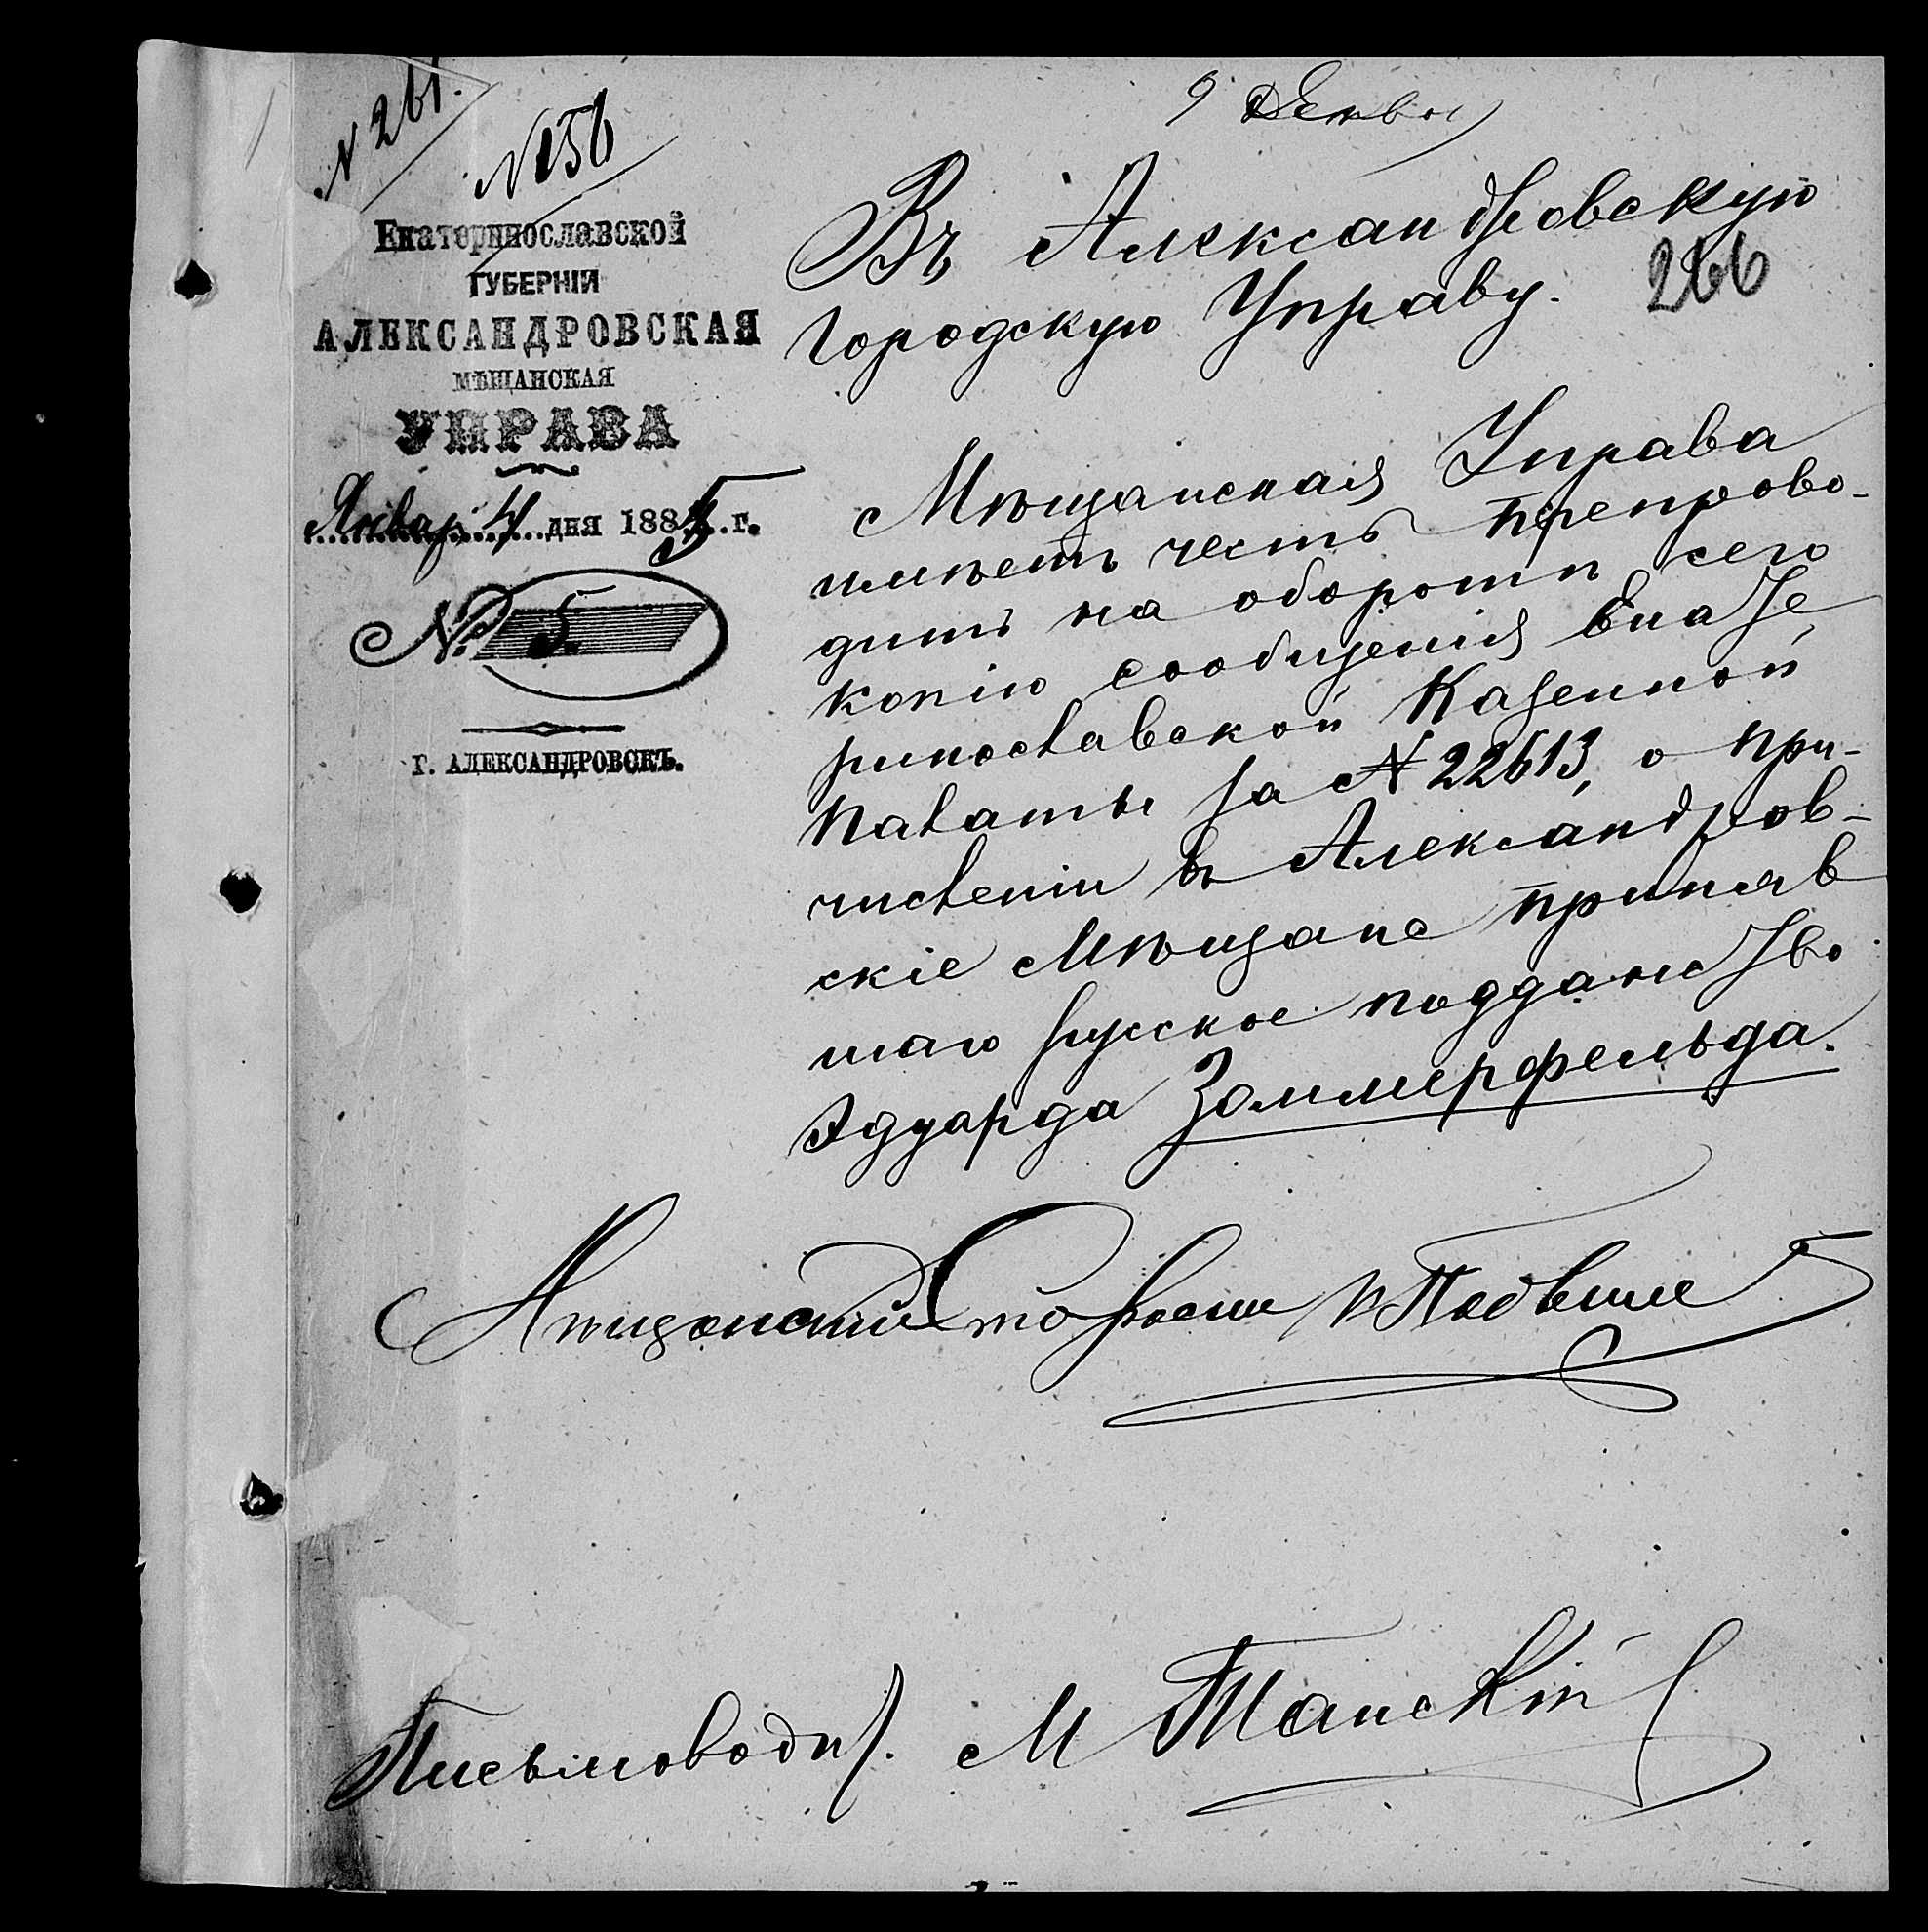 N 261.
№ 156
Екатеринославской
ГУБЕРНІИ
АЛЕКСАНДРОВСКАЯ
МѢЩАНСКАЯ
УПРАВА
Январ. 4 дня 1885 г.
№ 5.
г. АЛЕКСАНДРОВСКЪ.
9
Въ Александровскую
266
Городскую Управу.
Мѣщанская Управа
имѣетъ честь препрово-
дить на оборотѣ сего
копію сообщенія Екате
ринославской Казенной
Палаты за № 22613, о при-
численіи въ Александров-
скіе Мѣщане приняв
шаго русское подданство
Эдуарда Зоммерфельда.
Мѣщанскій Староста
Письмоводит. М Танскій